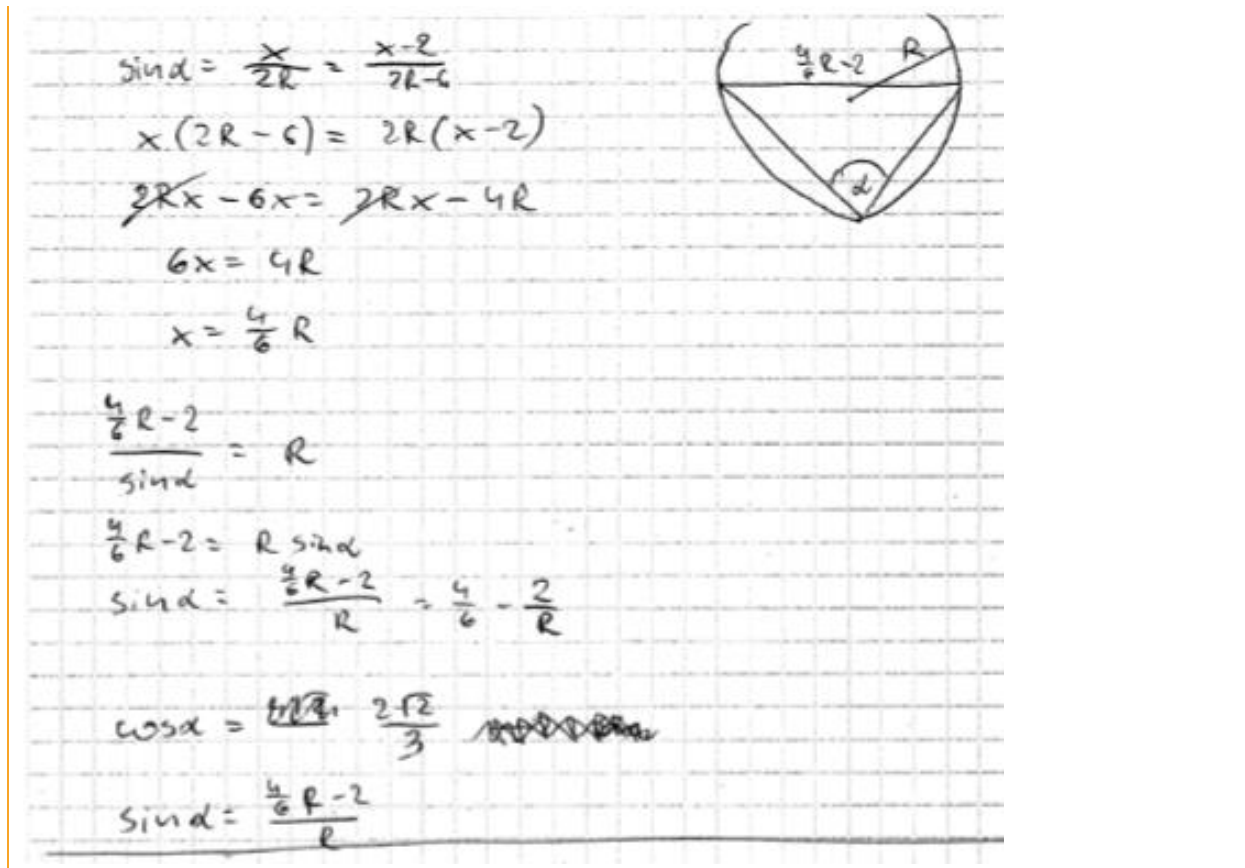 sin α = x/2R = x-2/2R-6
x(2R-6) = 2R(x-2)
2Rx - 6x = 2Rx - 4R
6x = 4R
x = 4/6 R
4/6 R - 2 / sin α = R
4/6 R - 2 = R sin α
sin α = 4/6 R - 2 / R = 4/6 - 2/R
cos α = 2√2/3
sin α = 4/6 R - 2 / R
4/6 R - 2
R
α